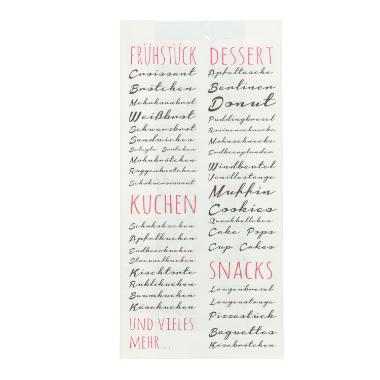 FRÜHSTÜCK
Croissant
Brötchen
Mehrkornbrot
Weißbrot
Schwarzbrot
Sandwiches
Belegte Brötchen
Mohnbrötchen
Roggenbrötchen
Schokocroissant
KUCHEN
Schokokuchen
Apfelkuchen
Erdbeerkuchen
Streuselkuchen
Kirschtorte
Rüblikuchen
Baumkuchen
Käsekuchen
UND VIELES
MEHR...
DESSERT
Apfeltasche
Berliner
Donut
Puddingbrezel
Rosinenschnecke
Mohnschnecke
Windbeutel
Vanillestange
Muffin
Cookies
Quarkbällchen
Cake Pops
Cup Cakes
SNACKS
Laugenbrezel
Laugenstange
Pizzastück
Baguettes
Käsebrötchen